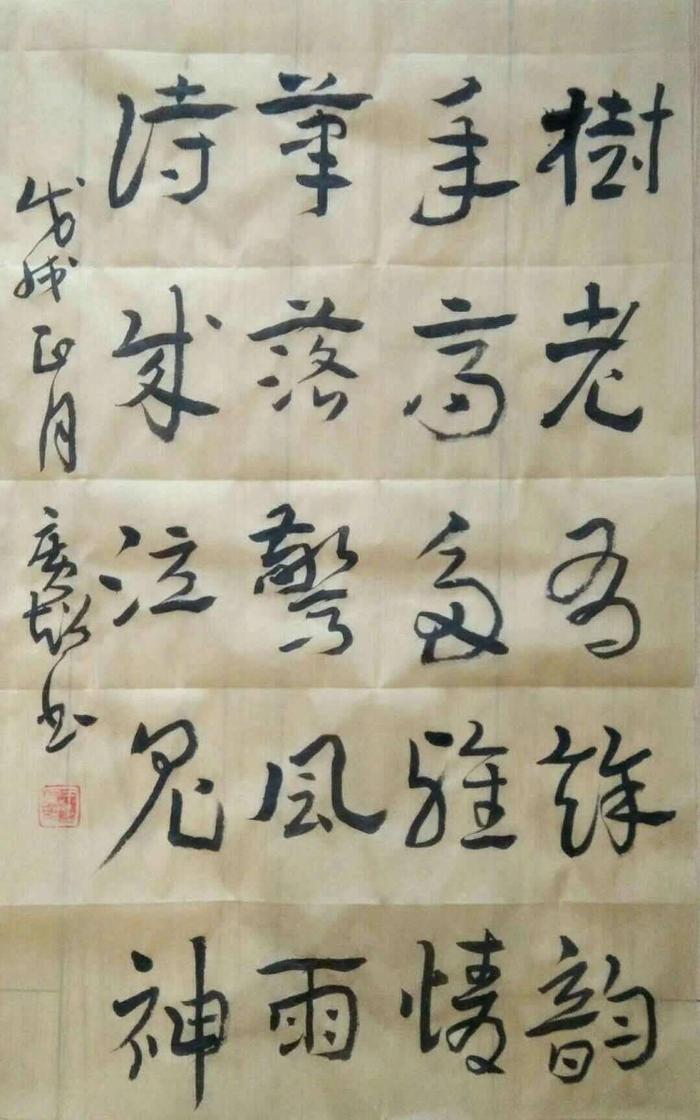 樹老有餘韻
年高多雅情
筆落驚風雨
詩成泣鬼神
戊戌正月 廣書